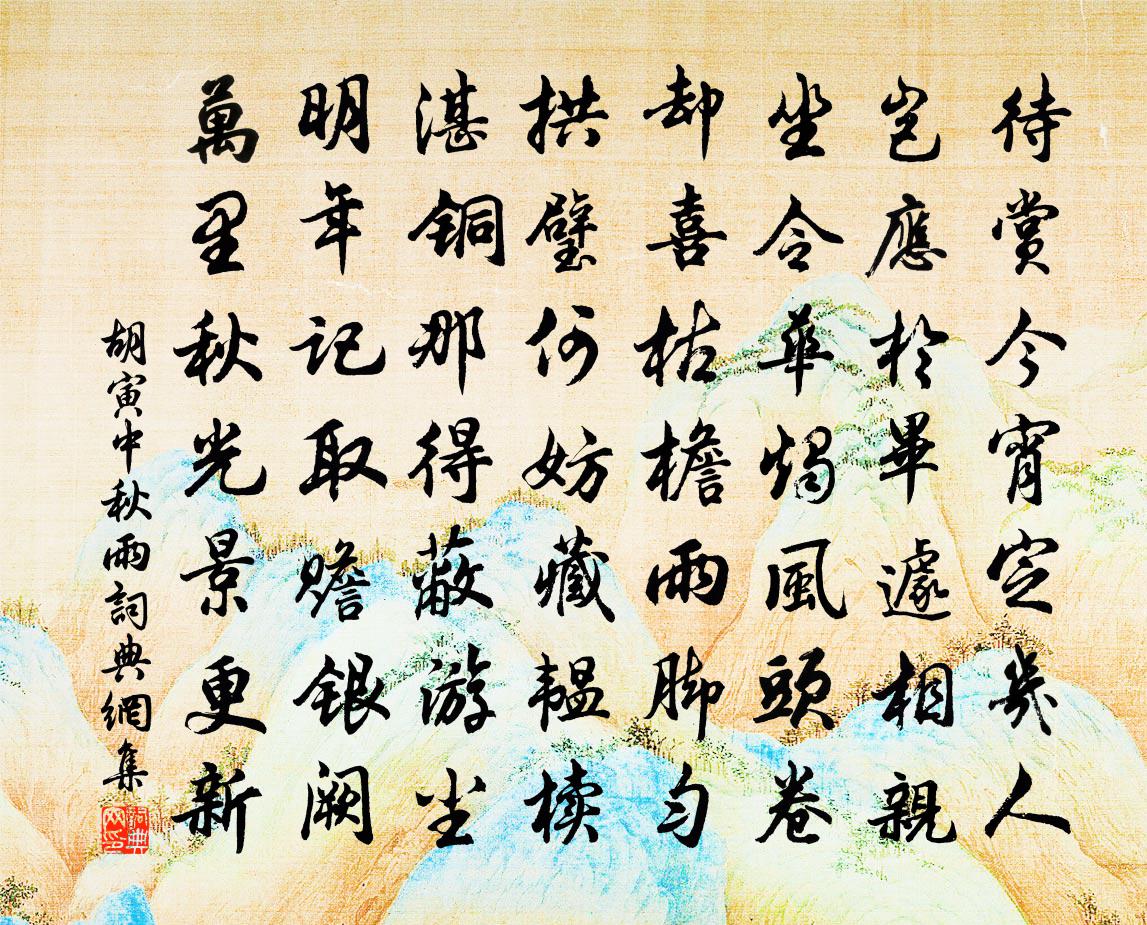 待賞今宵定幾人
豈應於畢遽相親
坐令華燭風頭卷
却喜枯檐雨脚勻
拱璧何妨藏韞櫝
湛銅那得蔽游尘
明年記取瞻銀闕
萬里秋光景更新
胡寅中秋雨詞典網集
詞典網印